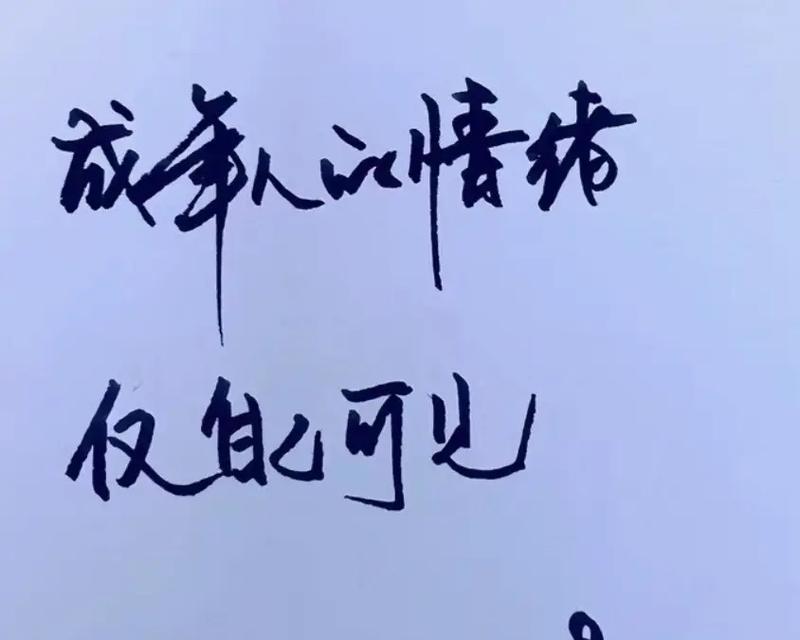 成年人的情绪
仅自己可见